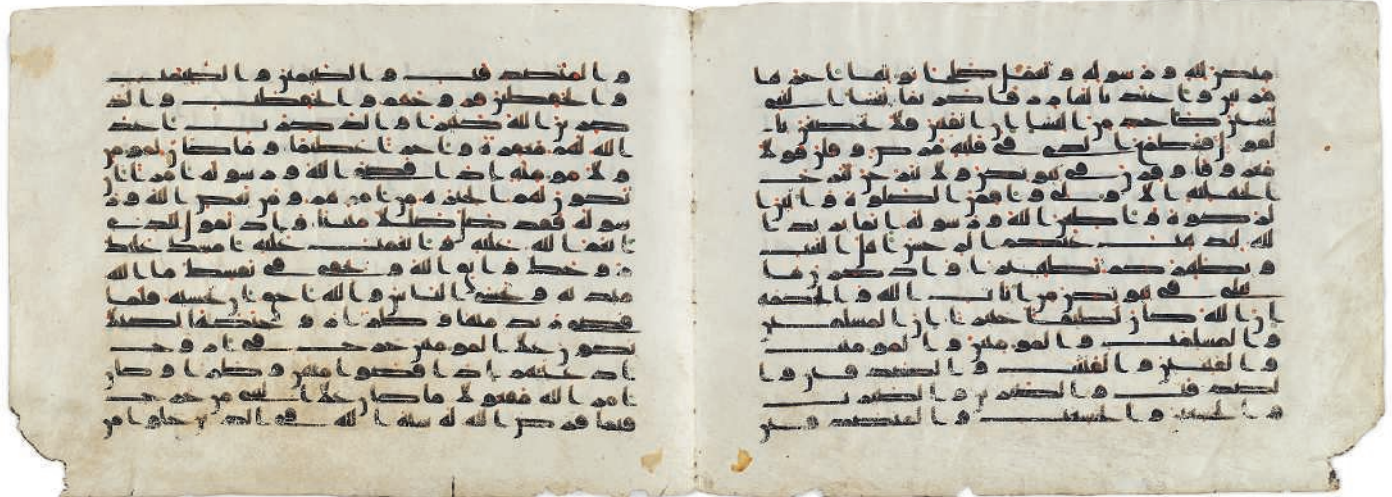 منكن لله ورسوله وتعمل صلحا نوتها اجرها
مرتين واعتدنا لها رزقا كريما ينسا النبي
لستن كاحد من النسا ان اتقيتن فلا تخضعن با
لقول فيطمع الذي في قلبه مرض وقلن قولا
معروفا وقرن في بيوتكن ولا تبرجن تبرج
الجهلية الاولى واقمن الصلوة واتين ا
لزكوة واطعن الله ورسوله انما يريد ا
لله ليذهب عنكم الرجس اهل البيت
ويطهركم تطهيرا واذكرن ما
يتلى في بيوتكن من ايت الله والحكمة
ان الله كان لطيفا خبيرا ان المسلمين
والمسلمت والمومنين والمومنت
والقنتين والقنتت والصدقين وا
لصدقت والصبرين والصبرت
والخشعين والخشعت والمتصدقين
والمتصدقت والصيمين والصيمت
والحفظين فروجهم والحفظت والذ
كرين الله كثيرا والذكرت اعد
الله لهم مغفرة واجرا عظيما وما كان لمومن
ولا مومنة اذا قضى الله ورسوله امرا ان
يكون لهم الخيرة من امرهم ومن يعص الله ور
سوله فقد ضل ضللا مبينا واذ تقول للذي
انعم الله عليه وانعمت عليه امسك عليك
زوجك واتق الله وتخفي في نفسك ما الله
مبديه وتخشى الناس والله احق ان تخشيه فلما
قضى زيد منها وطرا زوجنكها لكيلا
يكون على المومنين حرج في ازوج
ادعيهم اذا قضوا منهن وطرا وكان
امر الله مفعولا ما كان على النبي من حرج
فيما فرض الله له سنة الله في الذين خلوا من